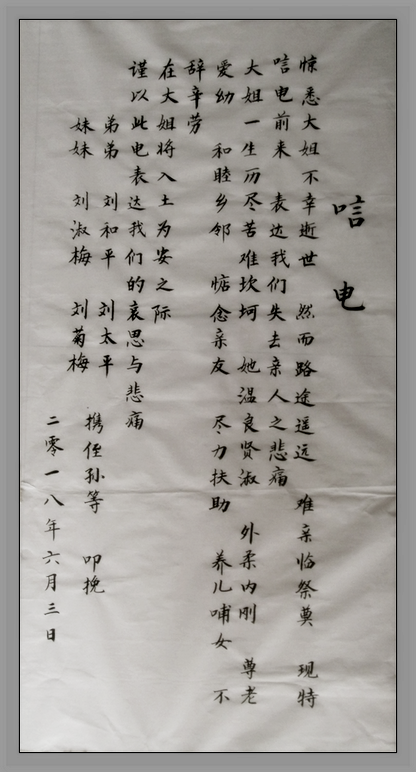 唁电
惊悉大姐不幸逝世 然而路途遥远 难亲临祭奠 现特
唁电前来 表达我们失去亲人之悲痛
大姐一生历尽苦难坎坷 她温良贤淑 外柔内刚 尊老
爱幼 和睦乡邻 惦念亲友 尽力扶助 养儿哺女 不
辞辛劳
在大姐将入土为安之际
谨以此电表达我们的哀思与悲痛
弟弟 刘和平 刘太平
妹妹 刘淑梅 刘菊梅
携侄孙等 叩挽
二零一八年六月三日